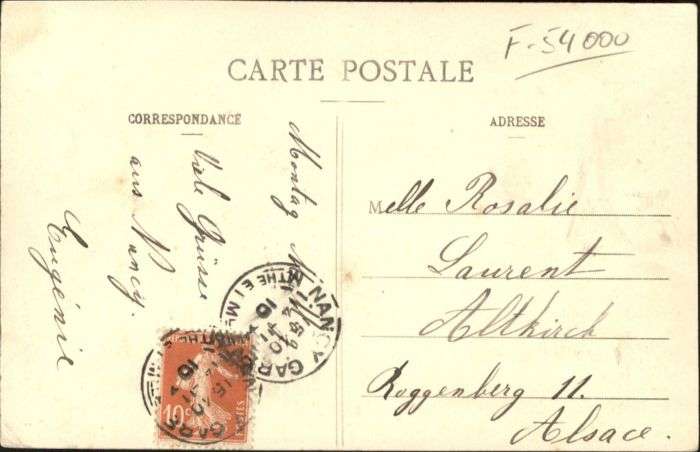 F-54000
CARTE POSTALE
CORRESPONDANCE
ADRESSE
Montag
Viele Grüsse
aus Nancy.
Eugénie
Melle Rosalie
Laurent
Altkirch
Roggenberg 11.
Alsace.
NANCY GARE
MTHE EI M
10
GARE
10c